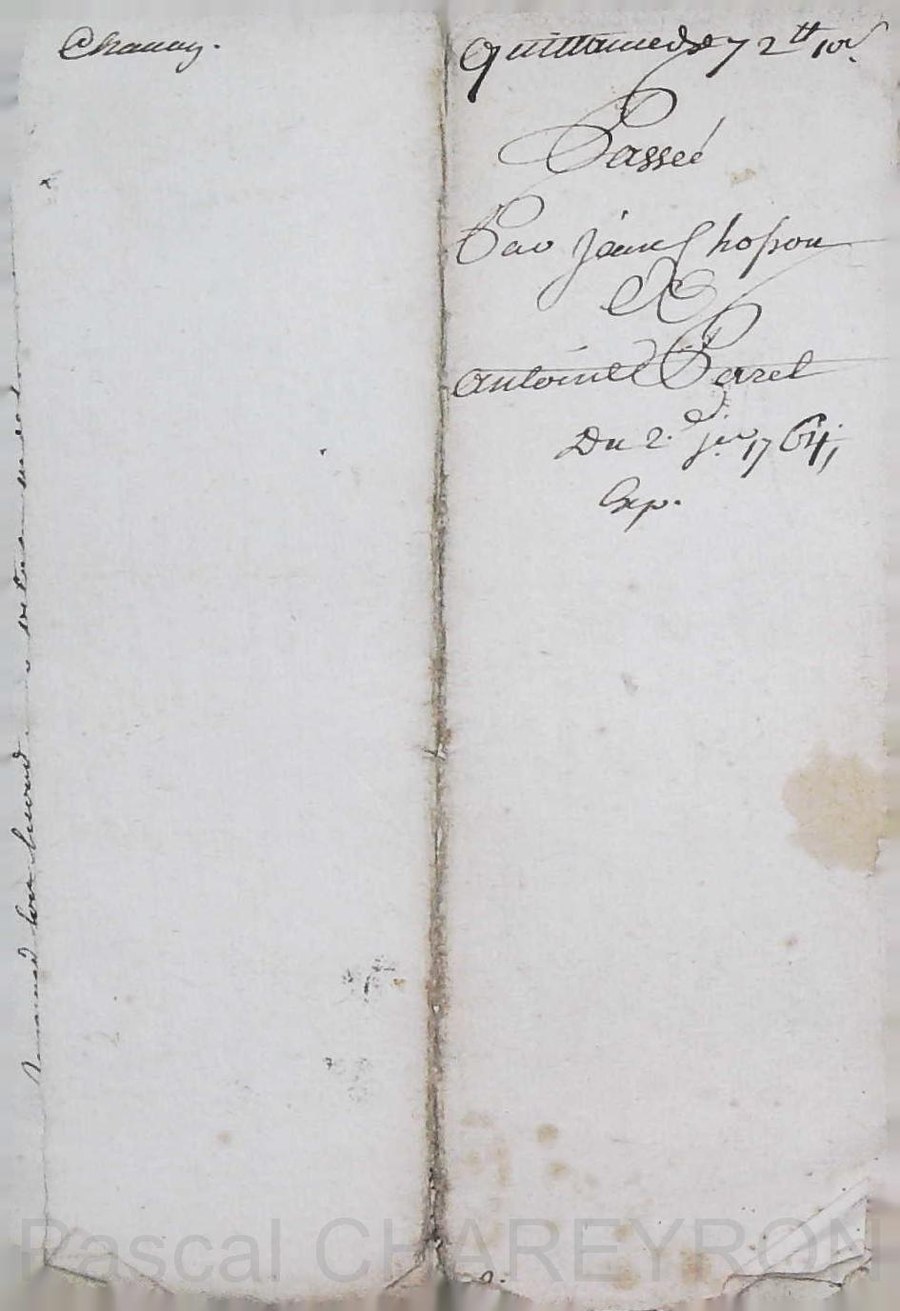 Chanay.
Quittance de 72 tt 10 s.
Passeé
Par Jean Chopon
A
Antoine Parel
Du 2.d jer 1764
Exp.
Pascal CHAREYRON